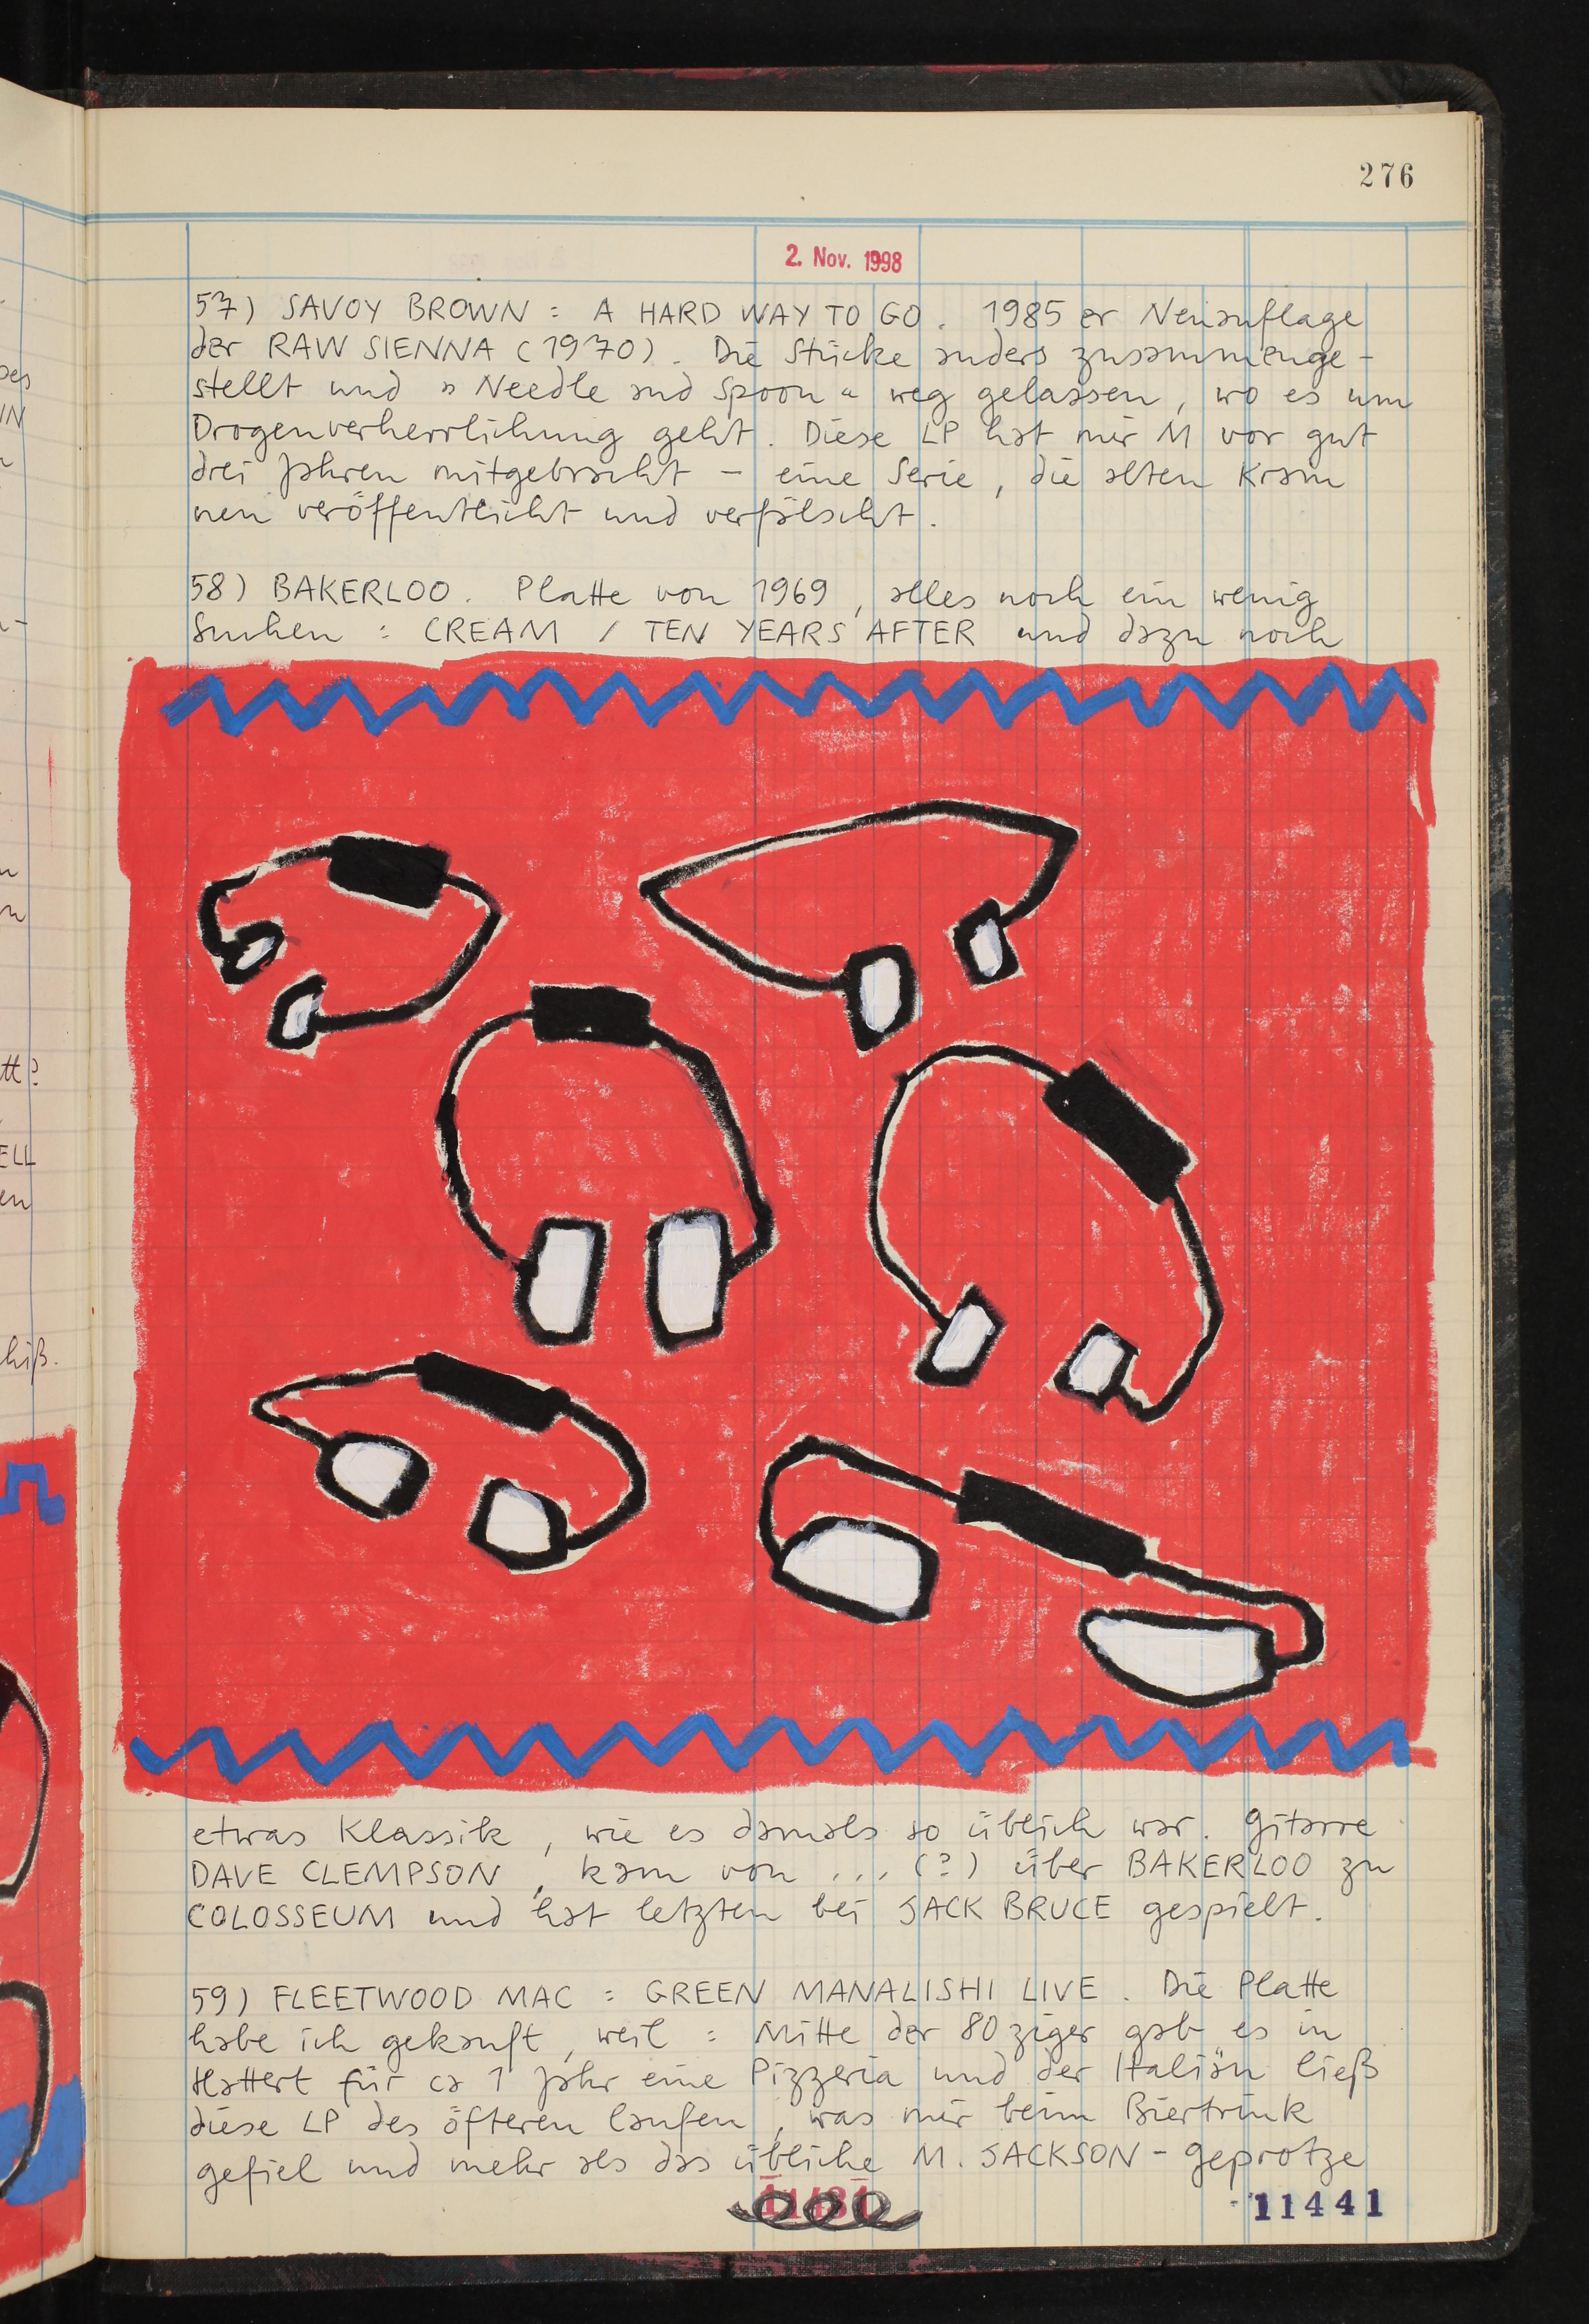 276
2. Nov. 1998
57) SAVOY BROWN : A HARD WAY TO GO. 1985 er Neuauflage
der RAW SIENNA (1970). Die Stücke anders zusammenge-
stellt und » Needle and Spoon « weg gelassen, wo es um
Drogenverherrlichung geht. Diese LP hat mir M vor gut
drei Jahren mitgebracht – eine Serie, die alten Kram
neu veröffentlicht und verfälscht.
58) BAKERLOO. Platte von 1969, alles noch ein wenig
Suchen : CREAM / TEN YEARS AFTER und dazu noch
etwas Klassik, wie es damals so üblich war. Gitarre
DAVE CLEMPSON, kam von ... (?) über BAKERLOO zu
COLOSSEUM und hat letzten bei JACK BRUCE gespielt.
59) FLEETWOOD MAC : GREEN MANALISHI LIVE. Die Platte
habe ich gekauft, weil : Mitte der 80ziger gab es in
Hattert für ca 1 Jahr eine Pizzeria und der Italiän ließ
diese LP des öfteren laufen, was mir beim Biertrink
gefiel und mehr als das übliche M. JACKSON - geprotze
11441